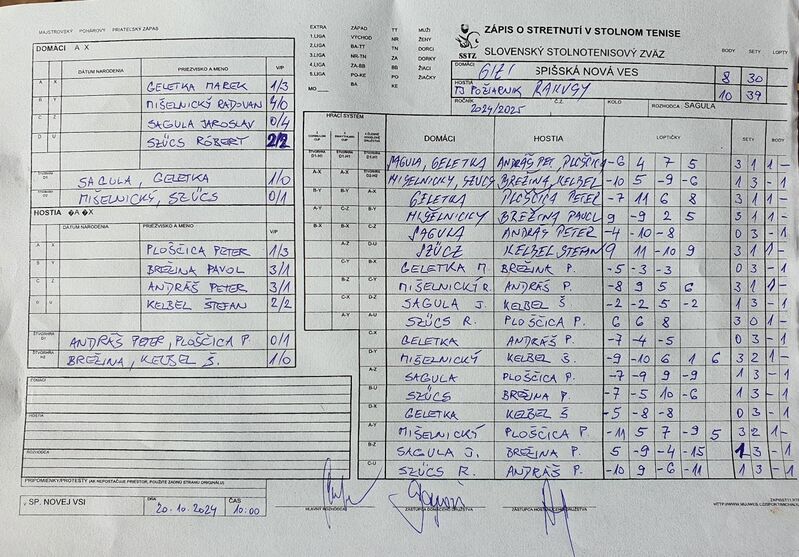 MAJSTROVSKÝ POHÁROVÝ PRIATEĽSKÝ ZÁPAS
EXTRA ZÁPAD TT MUŽI
1.LIGA VÝCHOD NR ŽENY
2.LIGA BA-TT TN DORCI
3.LIGA NR-TN ZA DORKY
4.LIGA ZA-BB BB ŽIACI
5.LIGA PO-KE PO ŽIAČKY
MO BA KE
SSTZ
ZÁPIS O STRETNUTÍ V STOLNOM TENISE
SLOVENSKÝ STOLNOTENISOVÝ ZVÄZ
BODY SETY LOPTY
DOMÁCI SPIŠSKÁ NOVÁ VES 8 30
HOSTIA TJ POŽIARNIK RAKUSY 10 39
ROČNÍK 2024/2025 Č.Z. KOLO ROZHODCA SAGULA
DOMÁCI A X
DÁTUM NARODENIA PRIEZVISKO A MENO V/P
A X GELETKA MAREK 1/3
B Y MIŠELNICKÝ RADOVAN 4/0
C Z SAGULA JAROSLAV 0/4
D U SZÜCS RÓBERT 2/2
ŠTVORHRA D1 SAGULA, GELETKA 1/0
MIŠELNICKÝ, SZÜCS 0/1
HOSTIA �A �X
DÁTUM NARODENIA PRIEZVISKO A MENO V/P
A X PLOŠČICA PETER 1/3
B Y BREŽINA PAVOL 3/1
C Z ANDRÁŠ PETER 3/1
D U KELBEL ŠTEFAN 2/2
ŠTVORHRA D1 ANDRÁŠ PETER, PLOŠČICA P. 0/1
ŠTVORHRA BREŽINA, KELBEL Š. 1/0
DOMÁCI
HOSTIA
ROZHODCA
HRACÍ SYSTÉM
DOMÁCI HOSTIA LOPTIČKY SETY BODY
SAGULA, GELETKA ANDRÁŠ PET. PLOŠČICA -6 4 7 5 3 1 1 -
MIŠELNICKÝ, SZÜCS BREŽINA, KELBEL -10 5 -9 -6 1 3 - 1
GELETKA PLOŠČICA PETER -7 11 6 8 3 1 1 -
MIŠELNICKÝ BREŽINA PAVOL 9 -9 2 5 3 1 1 -
SAGULA ANDRÁŠ PETER -4 -10 -8 0 3 - 1
SZÜCZ KELBEL ŠTEFAN 9 11 -10 9 3 1 1 -
B-X C-Y GELETKA M. BREŽINA P. -5 -3 -3 0 3 - 1
MIŠELNICKÝ R. ANDRÁŠ P. -8 9 5 6 3 1 1 -
SAGULA J. KELBEL Š -2 -2 5 -2 1 3 - 1
A-U SZÜCS R. PLOŠČICA P. 6 6 8 3 0 1 -
C-X GELETKA ANDRÁŠ P. -7 -4 -5 0 3 - 1
D-Y MIŠELNICKÝ KELBEL Š. -9 -10 6 1 6 3 2 1 -
A-Z SAGULA PLOŠČICA P. -7 -9 9 -9 1 3 - 1
B-U SZÜCS BREŽINA P. -7 -5 10 -6 1 3 - 1
D-X GELETKA KELBEL Š -5 -8 -8 0 3 - 1
A-Y MIŠELNICKÝ PLOŠČICA P. -11 5 7 -9 5 3 2 1 -
B-Z SAGULA J. BREŽINA P. 5 -9 -4 -15 1 3 - 1
C-U SZÜCS R. ANDRÁŠ P. -10 9 -6 -11 1 3 - 1
PRIPOMIENKY/PROTESTY (AK NEPOSTAČUJE PRIESTOR, POUŽITE ZADNÚ STRANU ORIGINÁLU)
V SP. NOVEJ VSI DŇA 20.10.2024 ČAS 10:00
HLAVNÝ ROZHODCA ZÁSTUPCA DOMÁCEHO DRUŽSTVA ZÁSTUPCA HOSŤUJÚCEHO DRUŽSTVA